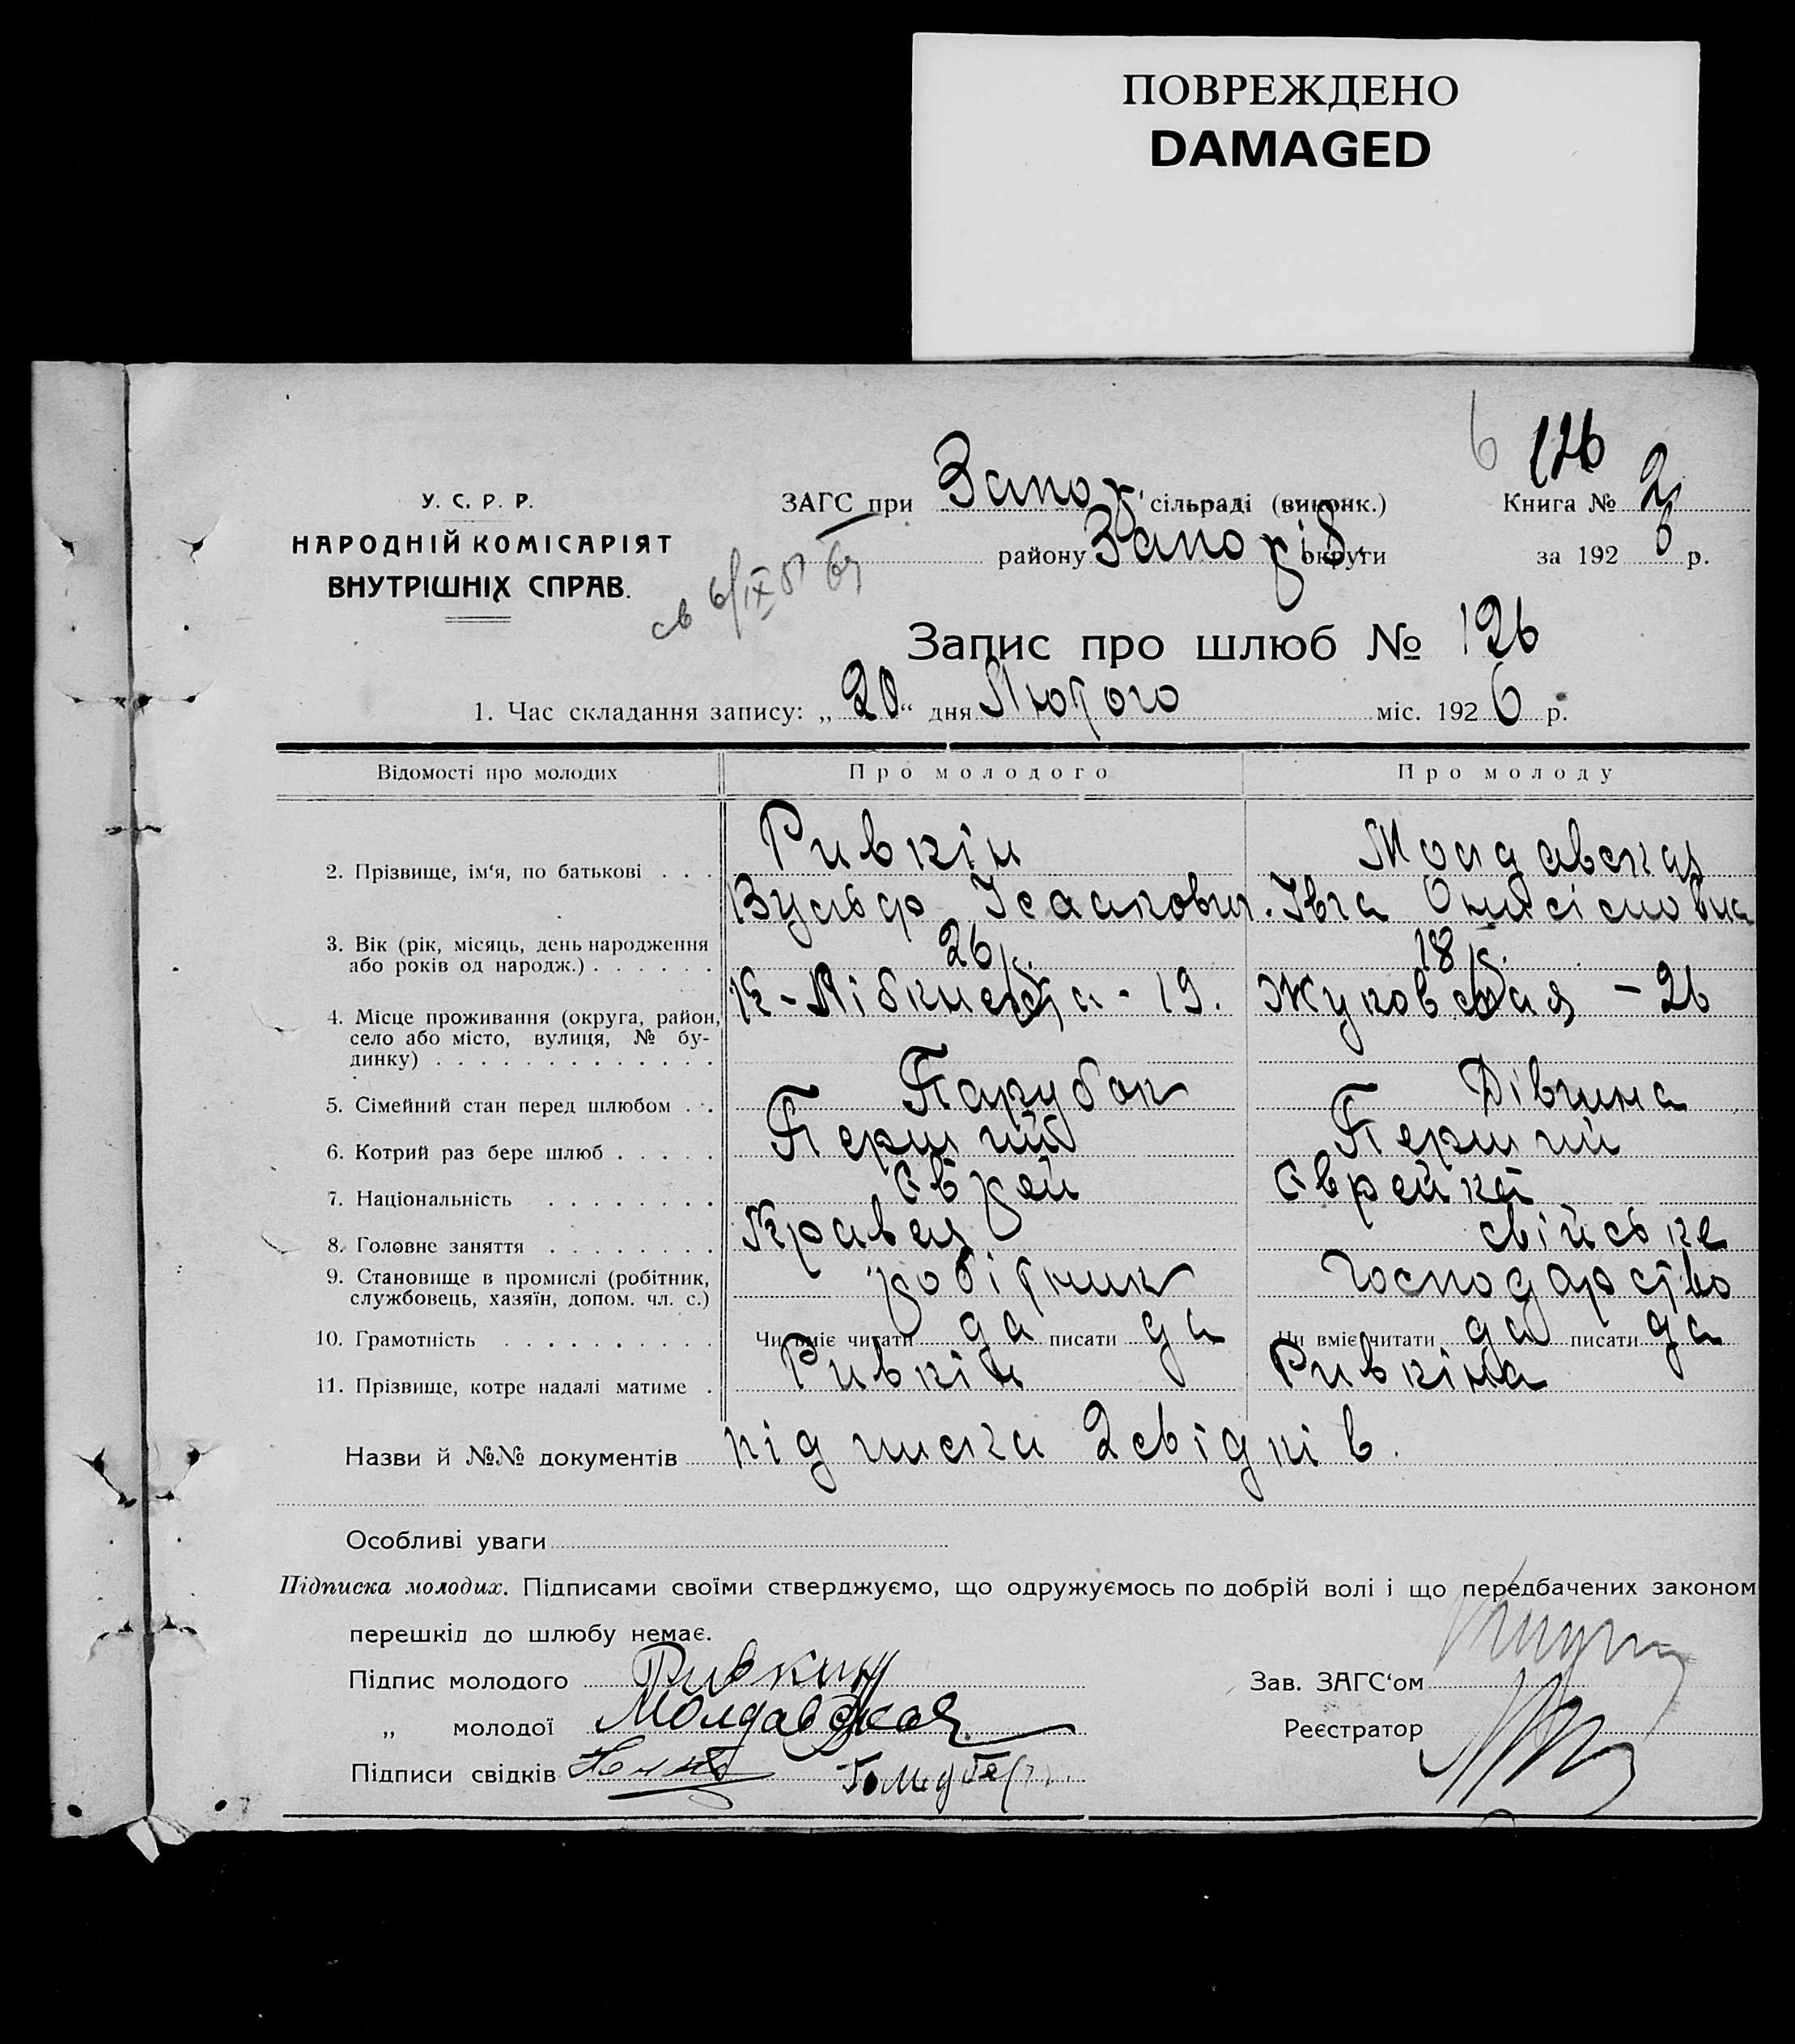 ПОВРЕЖДЕНО
DAMAGED
6 126
У. С. Р. Р.
НАРОДНІЙ КОМІСАРІЯТ
ВНУТРІШНІХ СПРАВ.
ЗАГС при Запор. сільраді (виконк.) Книга № 2
району Запоріз. округи за 1926 р.
Запис про шлюб № 126
1. Час складання запису: „20“ дня Лютого міс. 1926 р.
Відомості про молодих Про молодого Про молоду
2. Прізвище, ім‘я, по батькові . . . Ривкін Молдавская
Вульф Ісаакович. Івга
3. Вік (рік, місяць, день народження 26 р. 18 р.
або років од народж.) . . . . . .
К-Лібкнехта - 19. Жуковская - 26
4. Місце проживання (округа, район,
село або місто, вулиця, № бу-
динку) . . . . . . . . . . . . .
5. Сімейний стан перед шлюбом . . Парубок Дівчина
6. Котрий раз бере шлюб . . . . . Перший Перший
7. Національність . . . . . . . . Єврей Єврейка
8. Головне заняття . . . . . . . . Кравец свійське
9. Становище в промислі (робітник, робітник господарство
службовець, хазяїн, допом. чл. с.)
10. Грамотність . . . . . . . . . . Чи вміє читати да писати да Чи вміє читати да писати да
11. Прізвище, котре надалі матиме . Ривкін Ривкіна
Назви й №№ документів підписка 2 свідків.
Особливі уваги
Підписка молодих. Підписами своїми стверджуємо, що одружуємось по добрій волі і що передбачених законом
перешкід до шлюбу немає.
Підпис молодого Ривкин Зав. ЗАГС‘ом
„ молодої Молдавская Реєстратор
Підписи свідків